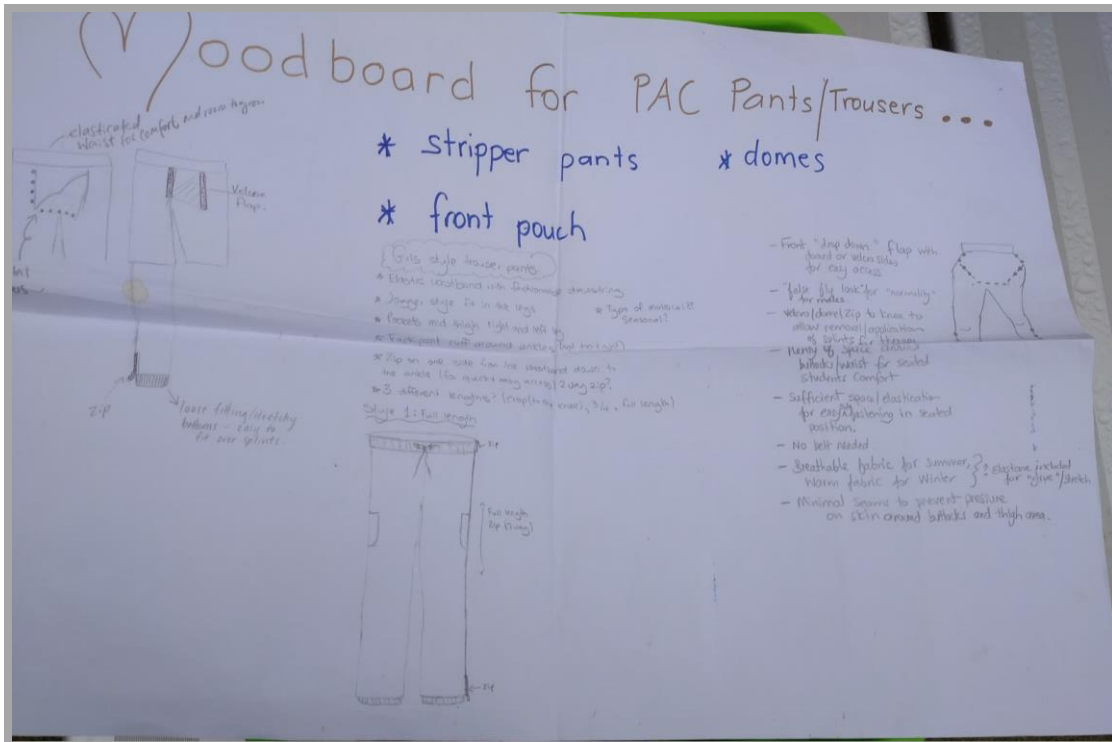 Moodboard for PAC Pants/Trousers...
* stripper pants
* domes
* front pouch
elasticated
waist for comfort and room
Velcro
flap.
zip
loose fitting/stretchy
bottoms - easy to
fit over splints.
Girls style trouser pants
* Elastic waistband with drawstring
* Jogger style fit in the legs
* Type of material?
Seasonal?
* Pockets mid thigh right and left leg
* cuff around ankles
* Zip on one side from the waistband down to
the ankle (for easy access) 2 way zip?
* 3 different lengths (knee), 3/4, full length)
Style 1: Full length
zip
Full length
zip (2 way)
zip
- Front "drop down" flap with
domed or velcro sides
for easy access
- "false fly look" for "normality"
for males
- Velcro/dome/zip to knee to
allow removal/application
of splints for therapy
- Plenty of space around
buttocks/waist for seated
students comfort
- Sufficient space/elastication
for easy fastening in seated
position.
- No belt needed
- Breathable fabric for Summer,
Warm fabric for Winter
? Elastane included
for "give"/stretch
- Minimal seams to prevent pressure
on skin around buttocks and thigh area.